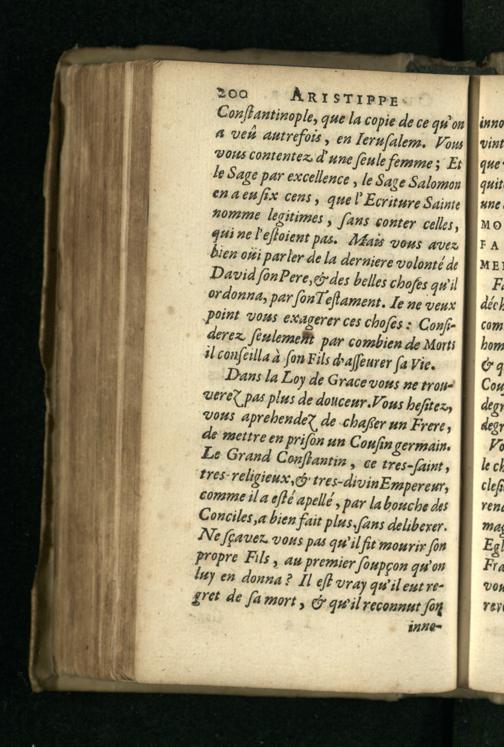 200 ARISTIPPE
Conſtantinople, que la copie de ce qu'on
a veû autrefois, en Ieruſalem. Vous
vous contentez d'une ſeule femme ; Et
le Sage par excellence, le Sage Salomon
en a eu ſix cens, que l'Ecriture Sainte
nomme legitimes, ſans conter celles,
qui ne l'eſtoient pas. Mais vous avez
bien oüi parler de la derniere volonté de
David ſon Pere, & des belles choſes qu'il
ordonna, par ſon Teſtament. Ie ne veux
point vous exagerer ces choſes : Conſi-
derez ſeulement par combien de Morts
il conſeilla à ſon Fils d'aſſeurer ſa Vie.
Dans la Loy de Grace vous ne trou-
verez pas plus de douceur. Vous heſitez,
vous aprehendez de chaſſer un Frere,
de mettre en priſon un Couſin germain.
Le Grand Conſtantin, ce tres-ſaint,
tres-religieux, & tres-divin Empereur,
comme il a eſté apellé, par la bouche des
Conciles, a bien fait plus, ſans deliberer.
Ne ſçavez vous pas qu'il fit mourir ſon
propre Fils, au premier ſoupçon qu'on
luy en donna ? Il eſt vray qu'il eut re-
gret de ſa mort, & qu'il reconnut ſon
inno-